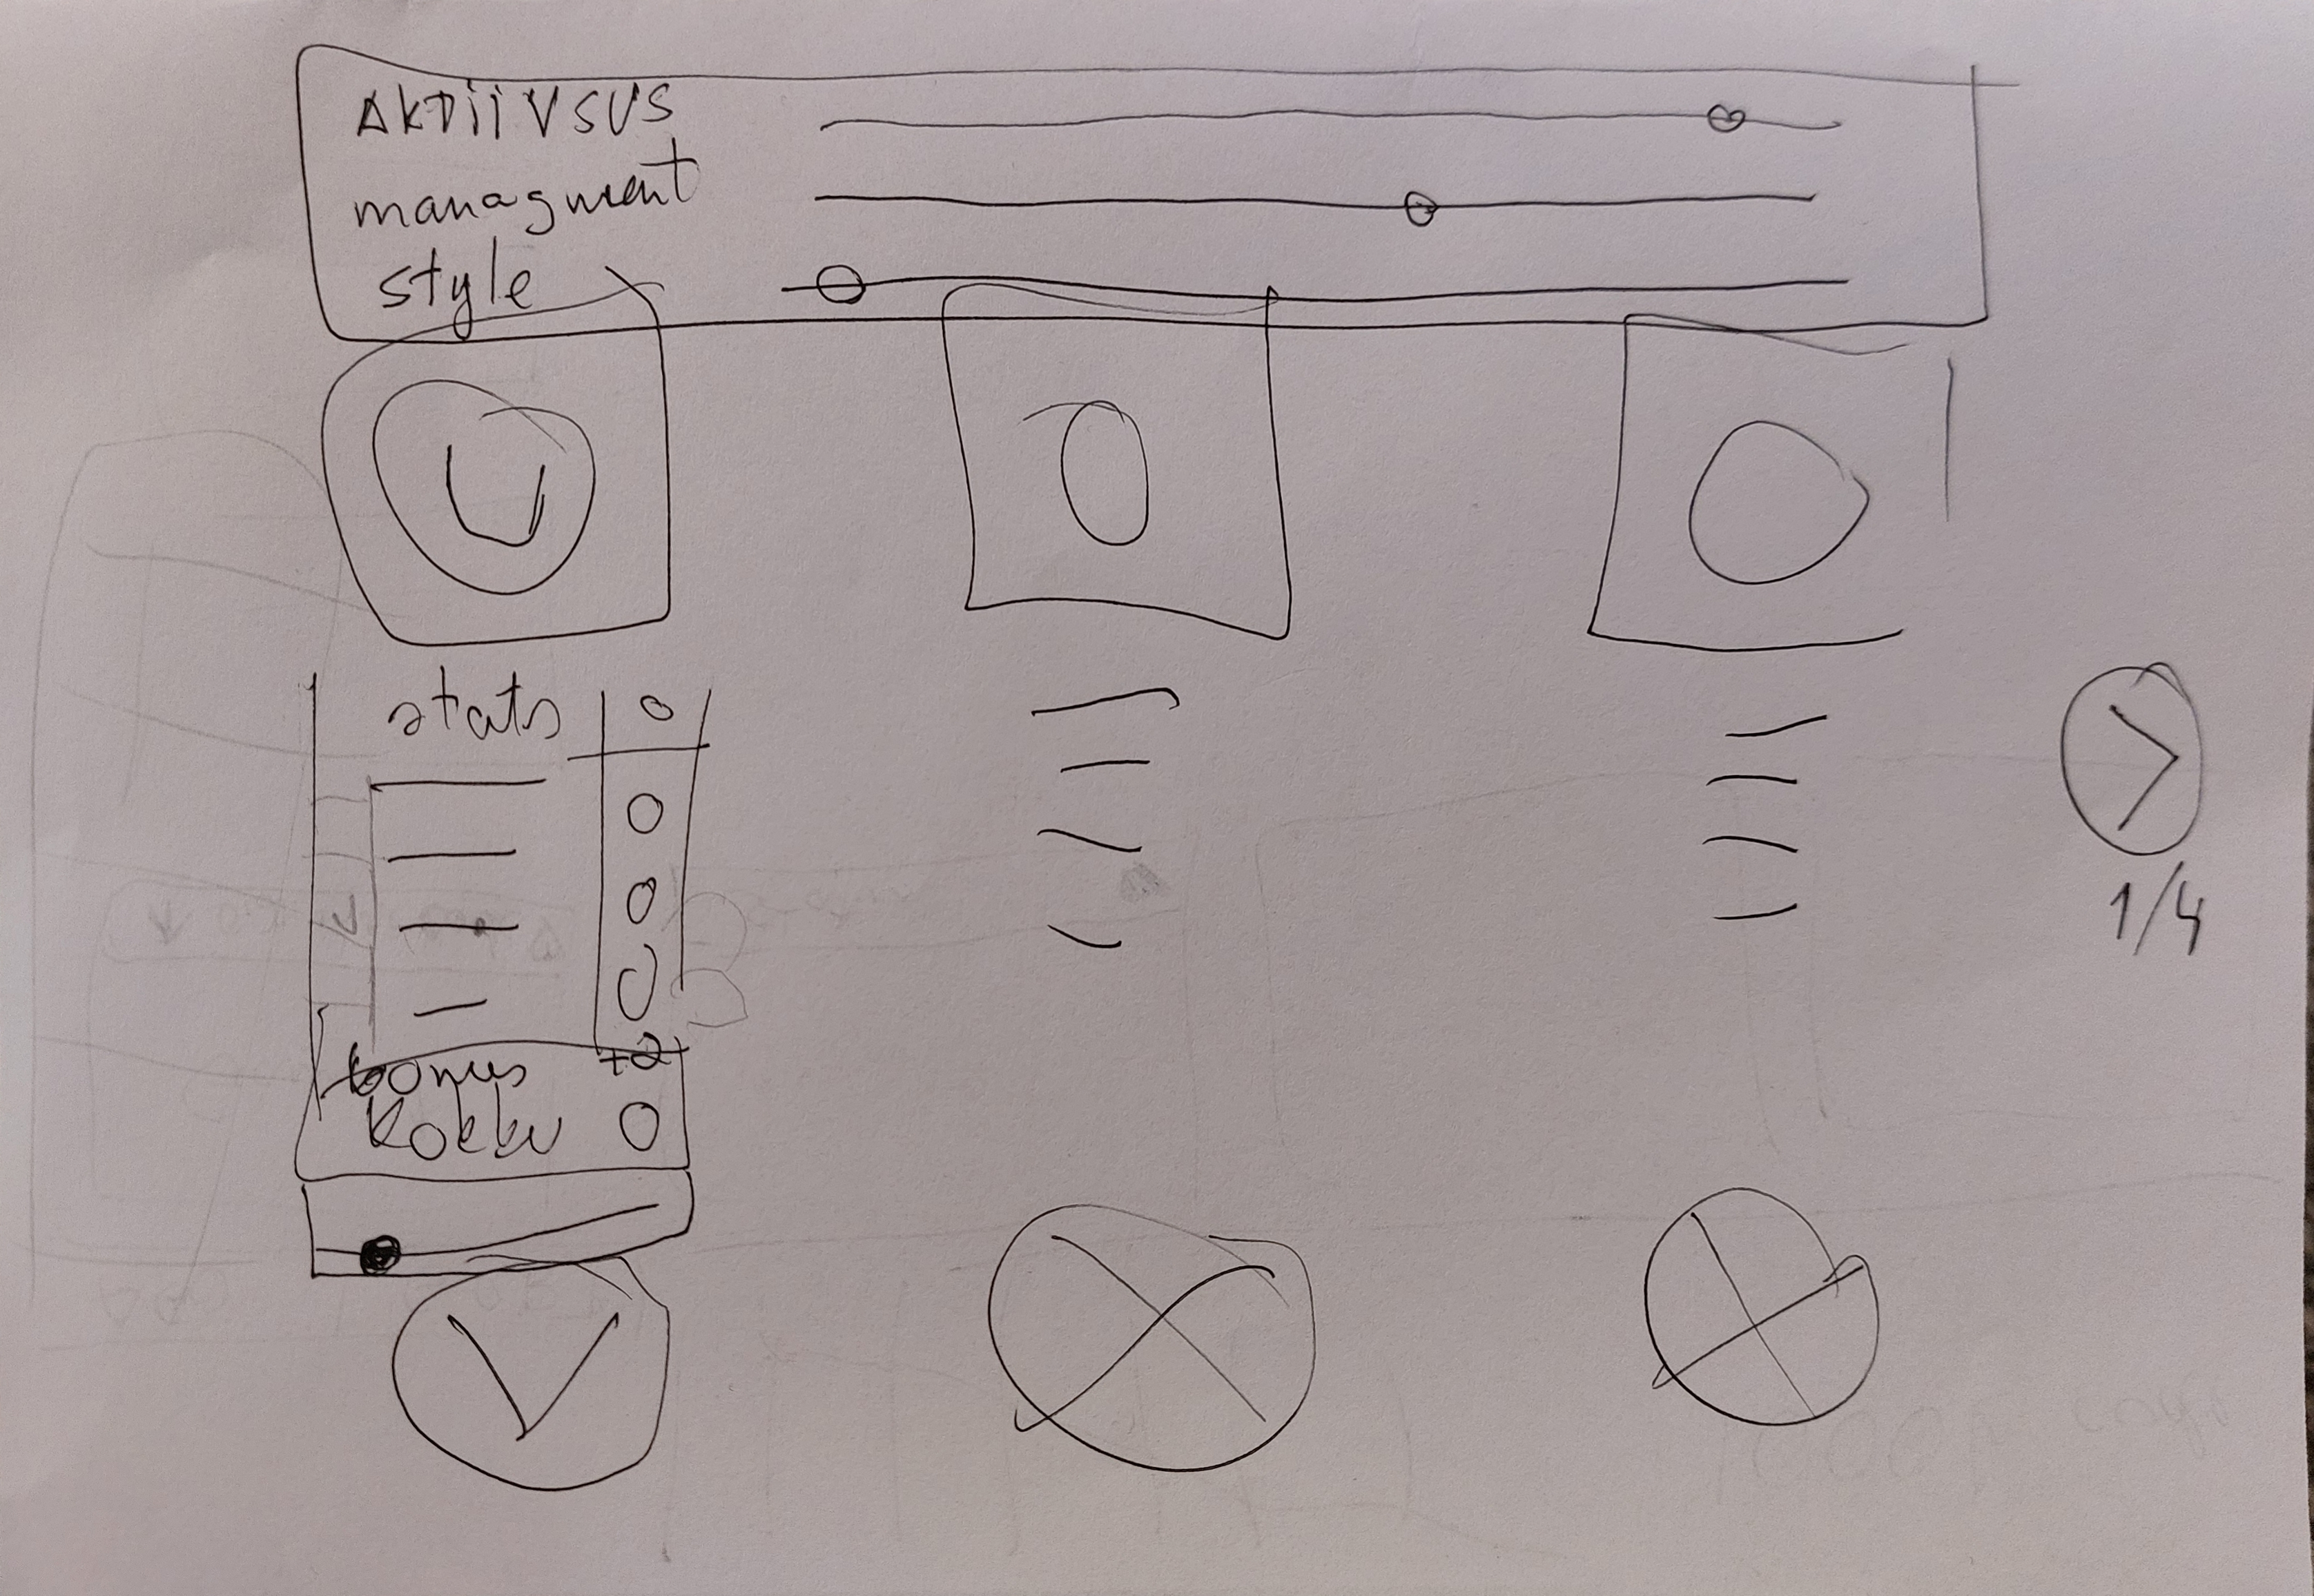 AKTIIVSUS
managment
style
stats
bonus +2
Kokku
1/4